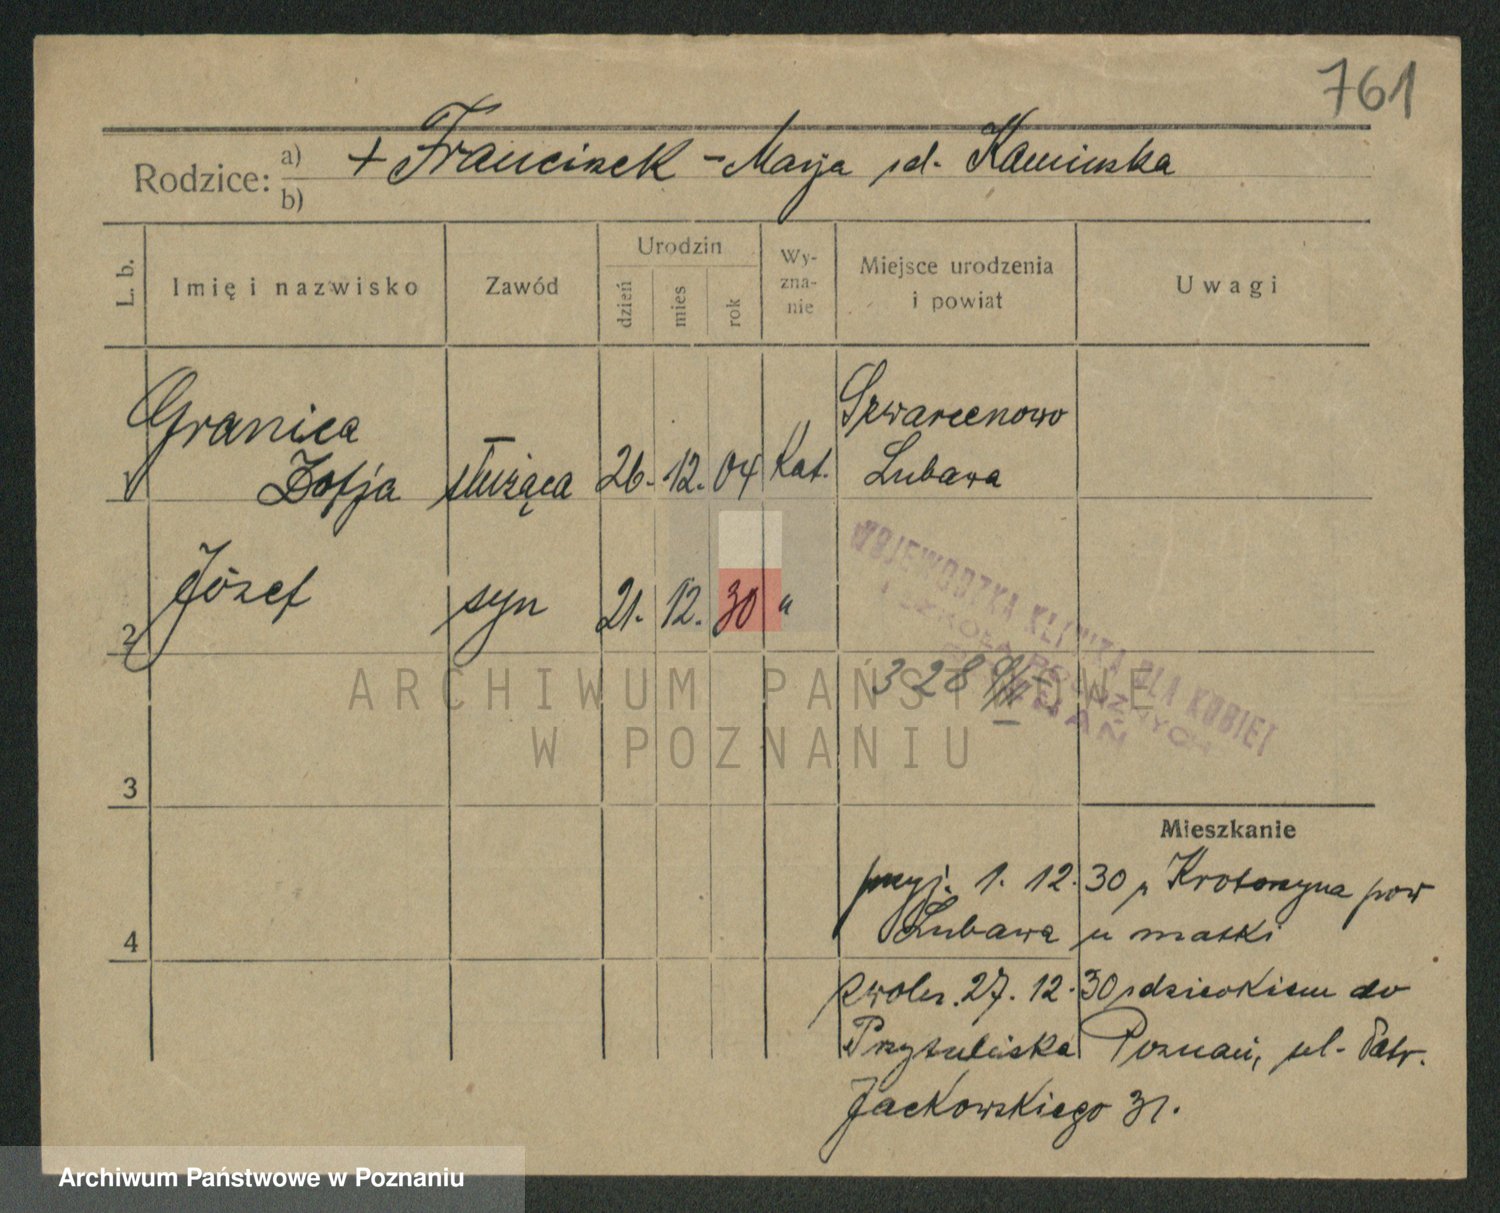 761
Rodzice: a) + Franciszek - Marja zd. Kaminska
b)
L. b. Imię i nazwisko Zawód Urodzin dzień mies rok Wy-zna-nie Miejsce urodzenia i powiat Uwagi
Granica Szwarcenowo
1 Zofja służąca 26. 12. 04 Kat. Lubawa
2 Józef syn 21. 12. 30 "
WOJEWÓDZKA KLINIKA DLA KOBIET
I SZKOŁA POŁOŻNYCH
POZNAŃ
328
ARCHIWUM PAŃSTWOWE
W POZNANIU
3
Mieszkanie
przyj. 1. 12. 30 z Krotoszyna pow
4 Lubawa u matki
zwoln. 27. 12. 30 z dzieckiem do
Przytuliska Poznań, ul. Patr.
Jackowskiego 31.
Archiwum Państwowe w Poznaniu